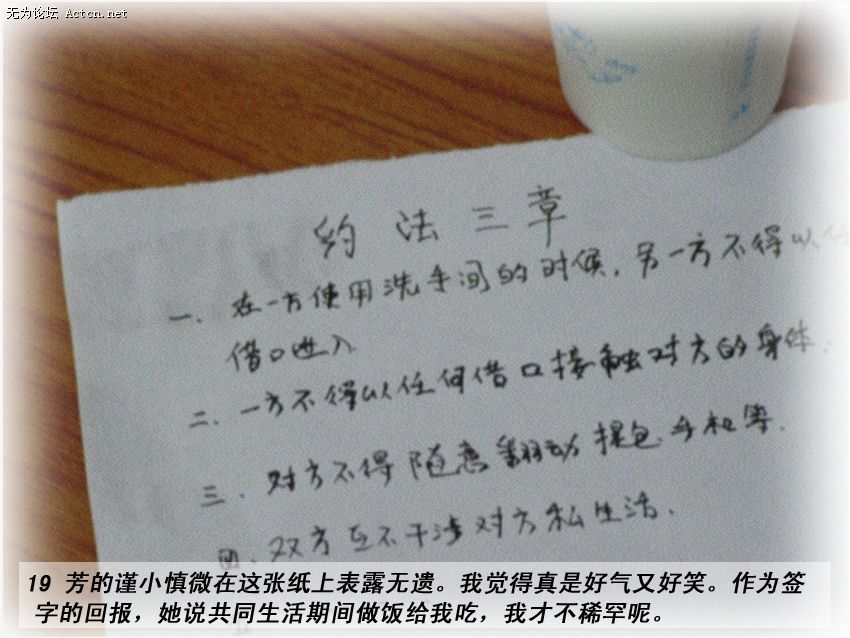 无为论坛 Actcn.net
约法三章
一、在一方使用洗手间的时候，另一方不得以任
借口进入
二、一方不得以任何借口接触对方的身体.
三、对方不得随意翻动提包、手机等.
四、双方互不干涉对方私生活.
19 芳的谨小慎微在这张纸上表露无遗。我觉得真是好气又好笑。作为签
字的回报，她说共同生活期间做饭给我吃，我才不稀罕呢。